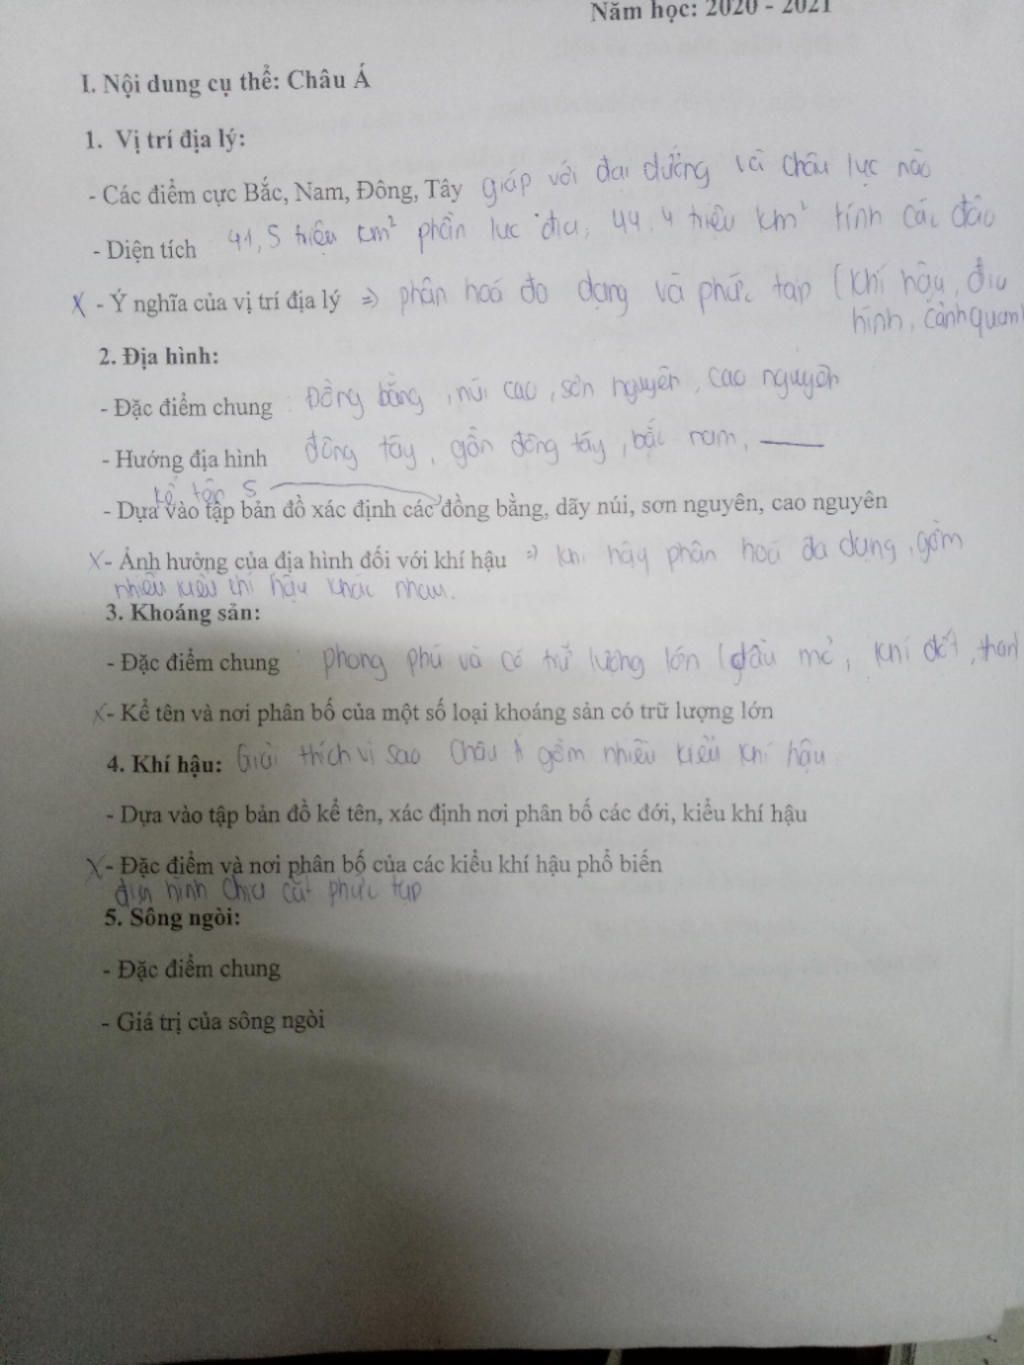 Năm học: 2020 - 2021
I. Nội dung cụ thể: Châu Á
1. Vị trí địa lý:
- Các điểm cực Bắc, Nam, Đông, Tây giáp với đại dương và châu lục nào
- Diện tích 41,5 triệu km² phần lục địa, 44,4 triệu km² tính các đảo
X - Ý nghĩa của vị trí địa lý => phân hoá đa dạng và phức tạp (khí hậu, địa
hình, cảnh quan)
2. Địa hình:
- Đặc điểm chung : Đồng bằng, núi cao, sơn nguyên, cao nguyên
- Hướng địa hình đông tây, gần đông tây, bắc nam,
kể tên 5
- Dựa vào tập bản đồ xác định các đồng bằng, dãy núi, sơn nguyên, cao nguyên
X - Ảnh hưởng của địa hình đối với khí hậu => khí hậu phân hoá đa dạng, gồm
nhiều kiểu khí hậu khác nhau.
3. Khoáng sản:
- Đặc điểm chung : phong phú và có trữ lượng lớn (dầu mỏ, khí đốt, than)
X - Kể tên và nơi phân bố của một số loại khoáng sản có trữ lượng lớn
4. Khí hậu: Giải thích vì sao Châu Á gồm nhiều kiểu khí hậu
- Dựa vào tập bản đồ kể tên, xác định nơi phân bố các đới, kiểu khí hậu
X - Đặc điểm và nơi phân bố của các kiểu khí hậu phổ biến
địa hình chia cắt phức tạp
5. Sông ngòi:
- Đặc điểm chung
- Giá trị của sông ngòi